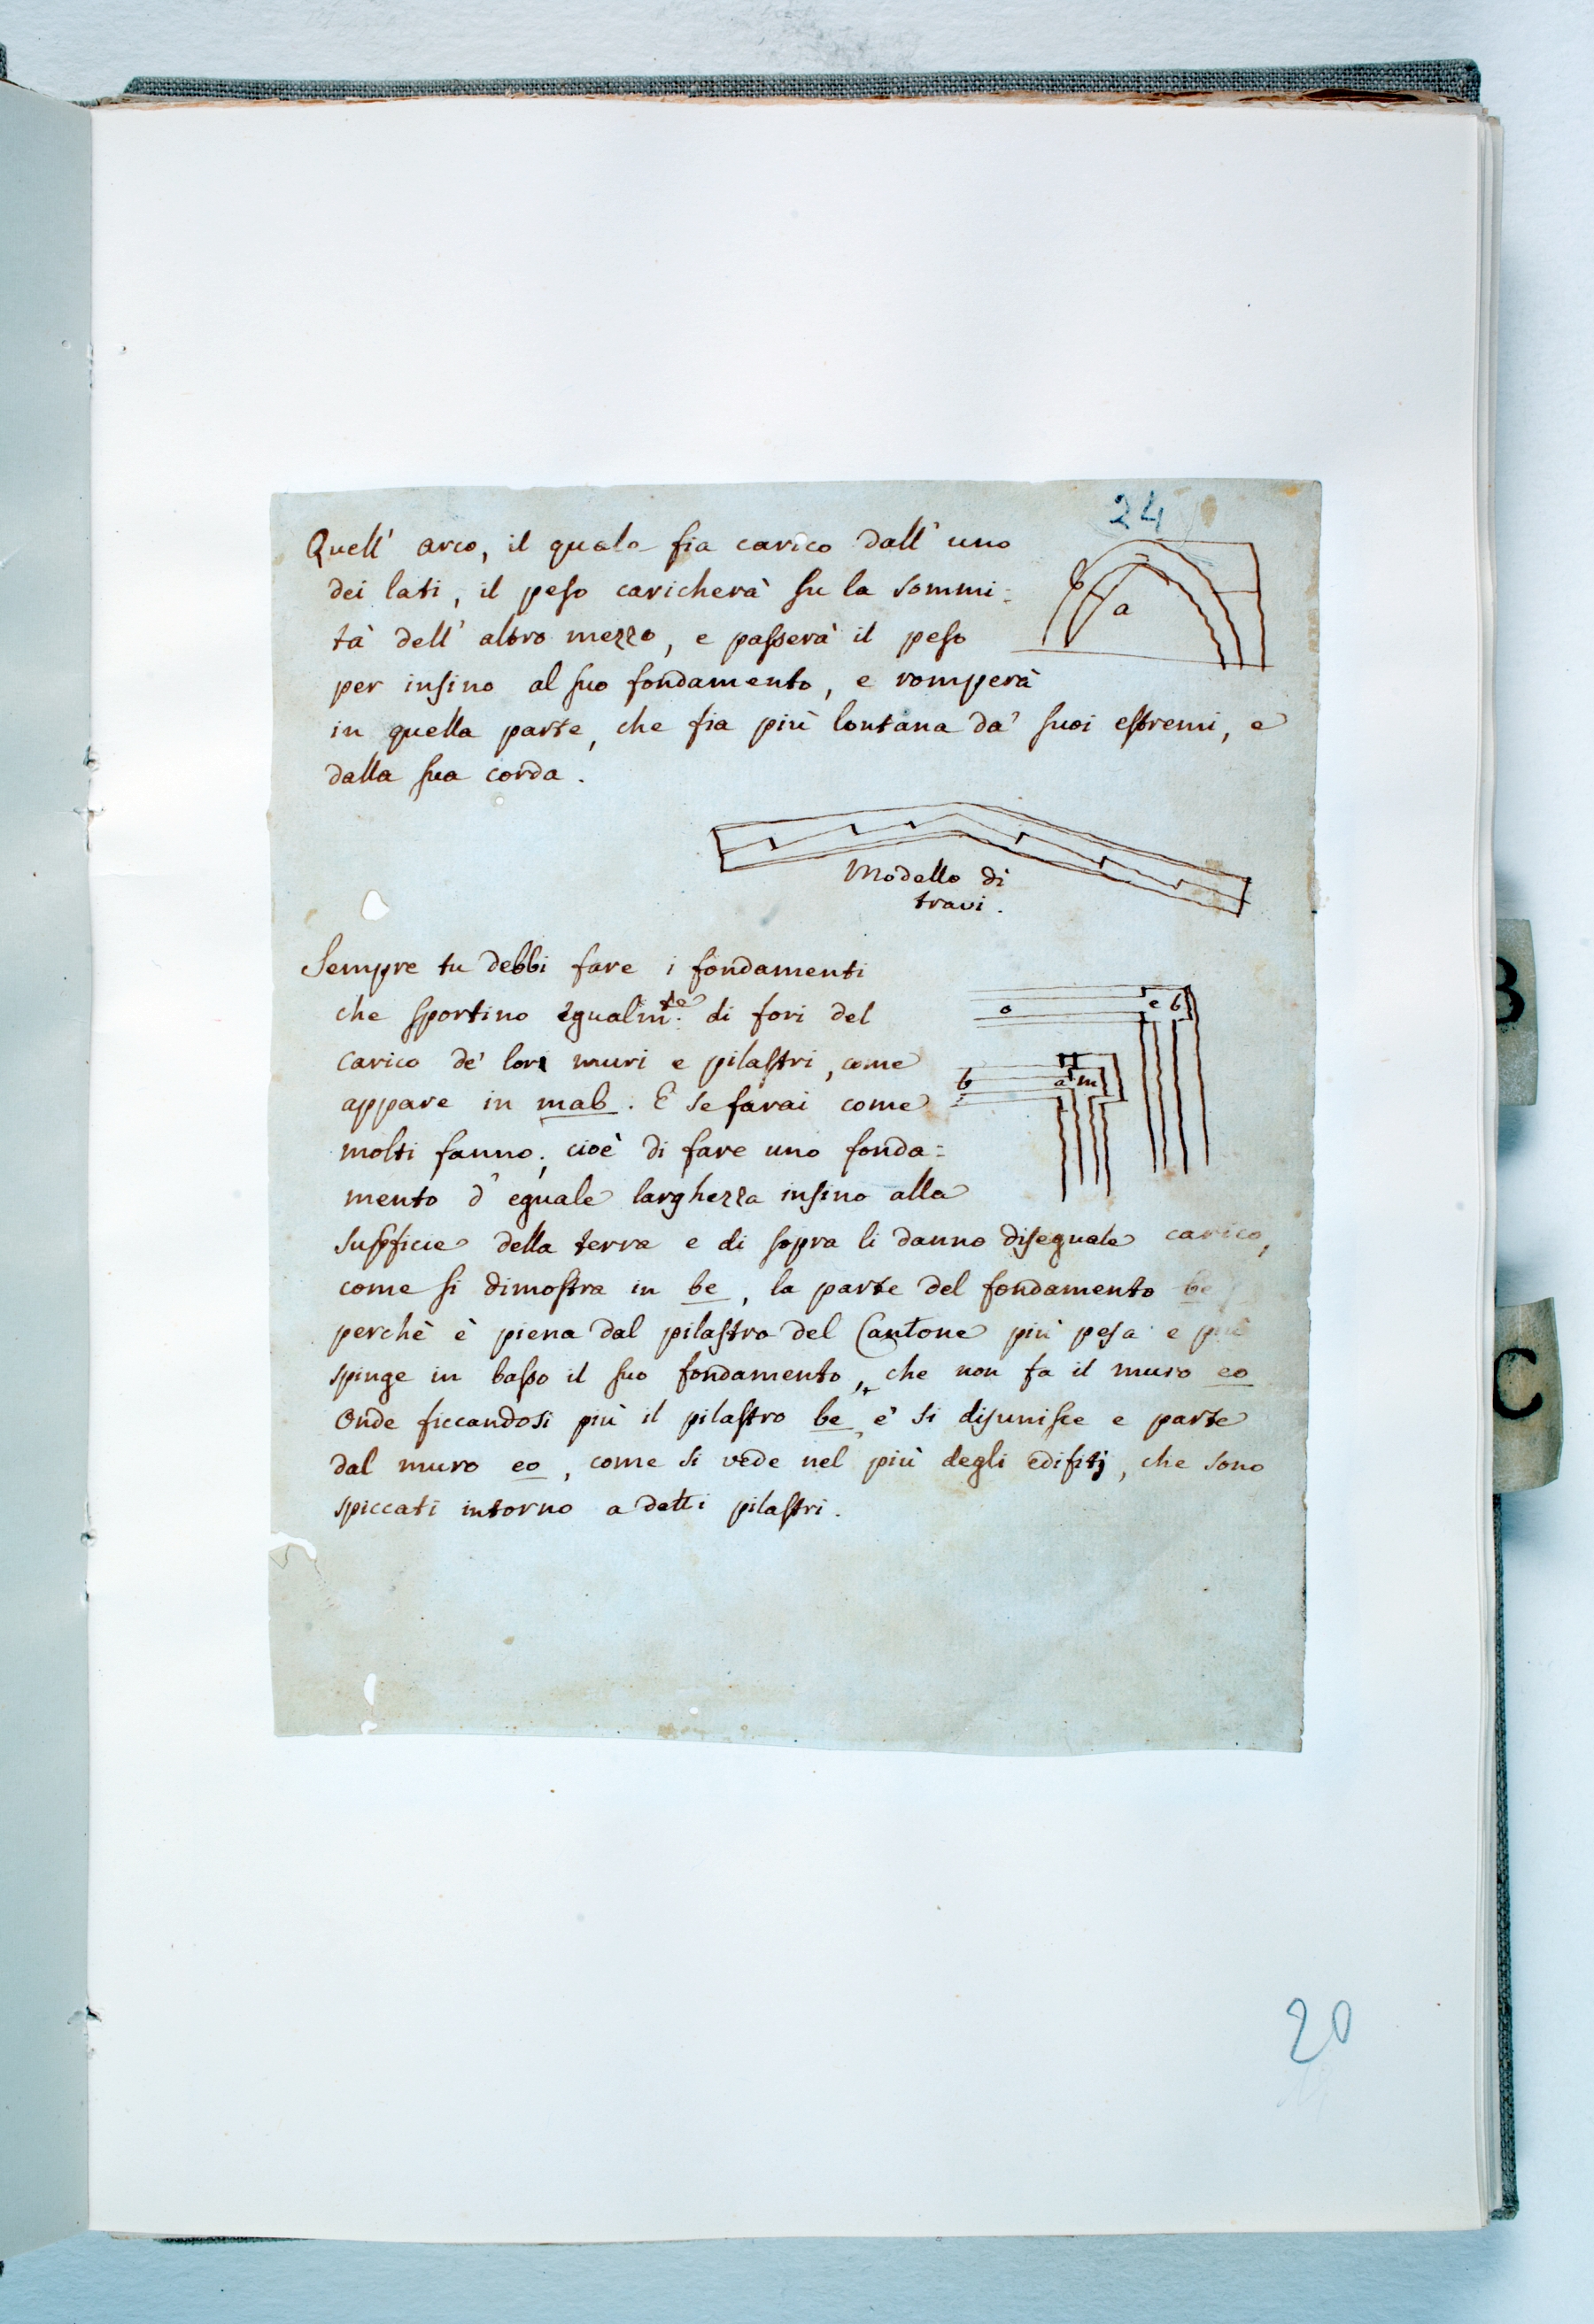 24
Quell' arco, il quale fia carico dall' uno
dei lati, il peso caricherà su la sommi=
tà dell' altro mezzo, e passerà il peso
per insino al suo fondamento, e romperà
in quella parte, che fia più lontana da' suoi estremi, e
dalla sua corda.
b
a
Modello di
travi.
Sempre tu debbi fare i fondamenti
che sportino egualm.te di fori del
carico de' lori muri e pilastri, come
appare in mab. E se farai come
molti fanno, cioè di fare uno fonda=
mento d' eguale larghezza insino alla
supficie della terra e di sopra li danno diseguale carico,
come si dimostra in be, la parte del fondamento be
perchè è piena dal pilastro del Cantone più pesa e più
spinge in basso il suo fondamento, che non fa il muro eo
Onde ficcandosi più il pilastro be, e' si disunisce e parte
dal muro eo, come si vede nel più degli edifitj, che sono
spiccati intorno a detti pilastri.
o e b
b a m
B
C
20